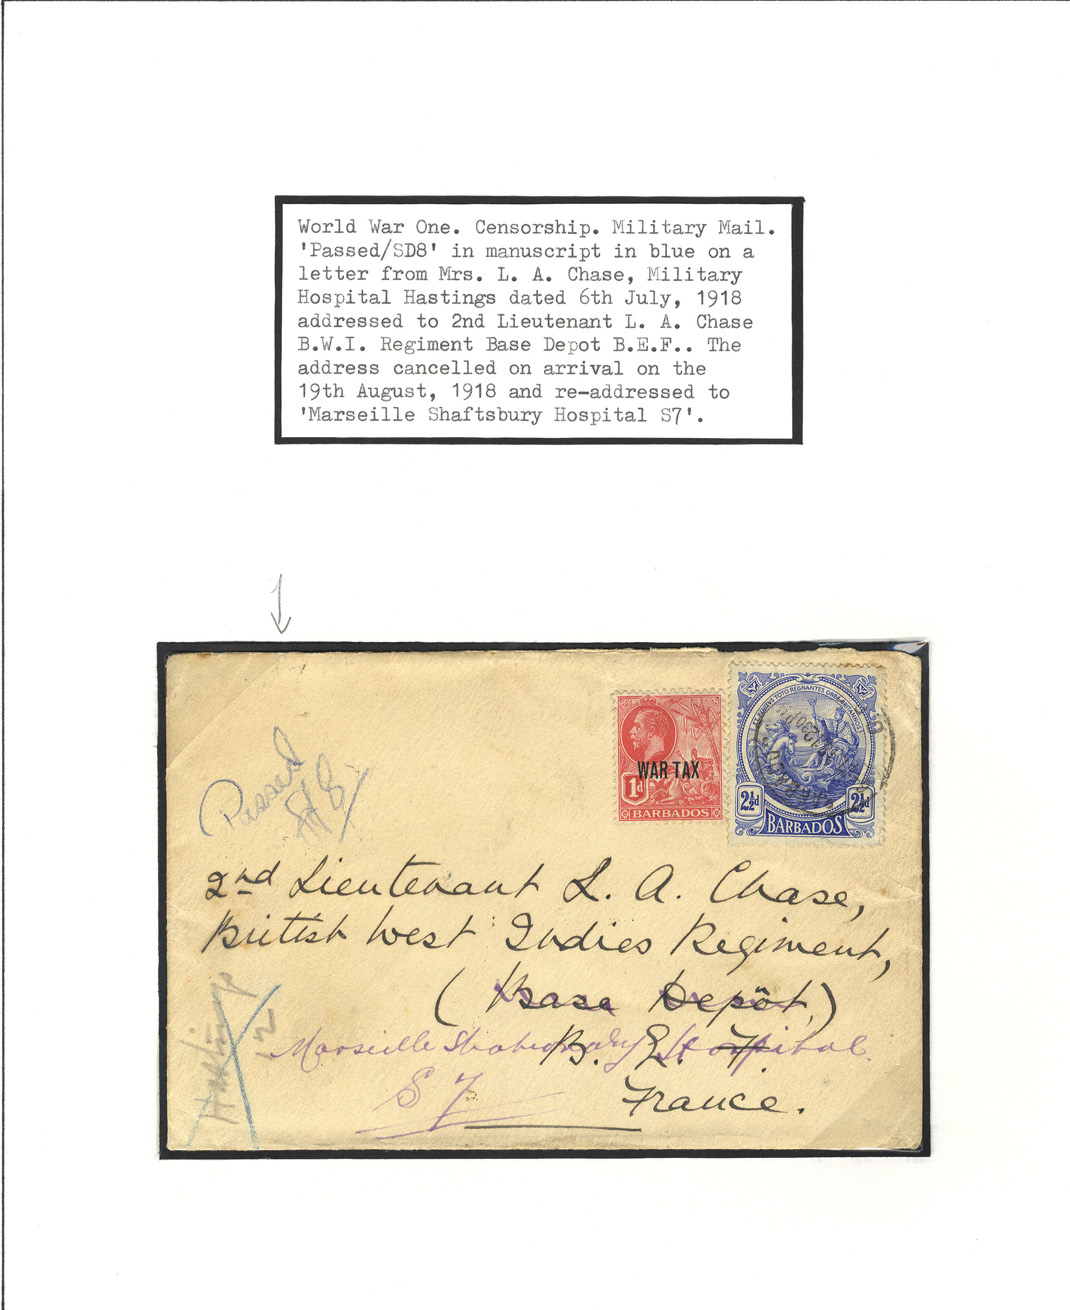 World War One. Censorship. Military Mail.
'Passed/SD8' in manuscript in blue on a
letter from Mrs. L. A. Chase, Military
Hospital Hastings dated 6th July, 1918
addressed to 2nd Lieutenant L. A. Chase
B.W.I. Regiment Base Depot B.E.F.. The
address cancelled on arrival on the
19th August, 1918 and re-addressed to
'Marseille Shaftsbury Hospital S7'.
Passed
WAR TAX
1d
BARBADOS
2½d 2½d
BARBADOS
2nd Lieutenant L. A. Chase,
British West Indies Regiment,
(Base Depôt,)
B. E. F.
France.
Marseille Stationary Hospital.
S7
Hastings